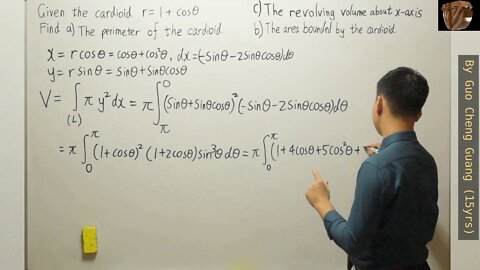 Given the cardioid r = 1 + cosθ
Find a) The perimeter of the cardioid.
c) The revolving volume about x-axis
b) The area bounded by the cardioid.
x = r cosθ = cosθ+cos²θ, dx=(-sinθ-2sinθcosθ)dθ
y = r sinθ = sinθ+sinθcosθ
V = ∫(L) π y² dx = π ∫_π^0 (sinθ+sinθcosθ)² (-sinθ-2sinθcosθ)dθ
= π ∫_0^π (1+cosθ)² (1+2cosθ) sin³θ dθ = π ∫_0^π (1+4cosθ+5cos²θ+
By Guo Cheng Guang (15yrs)